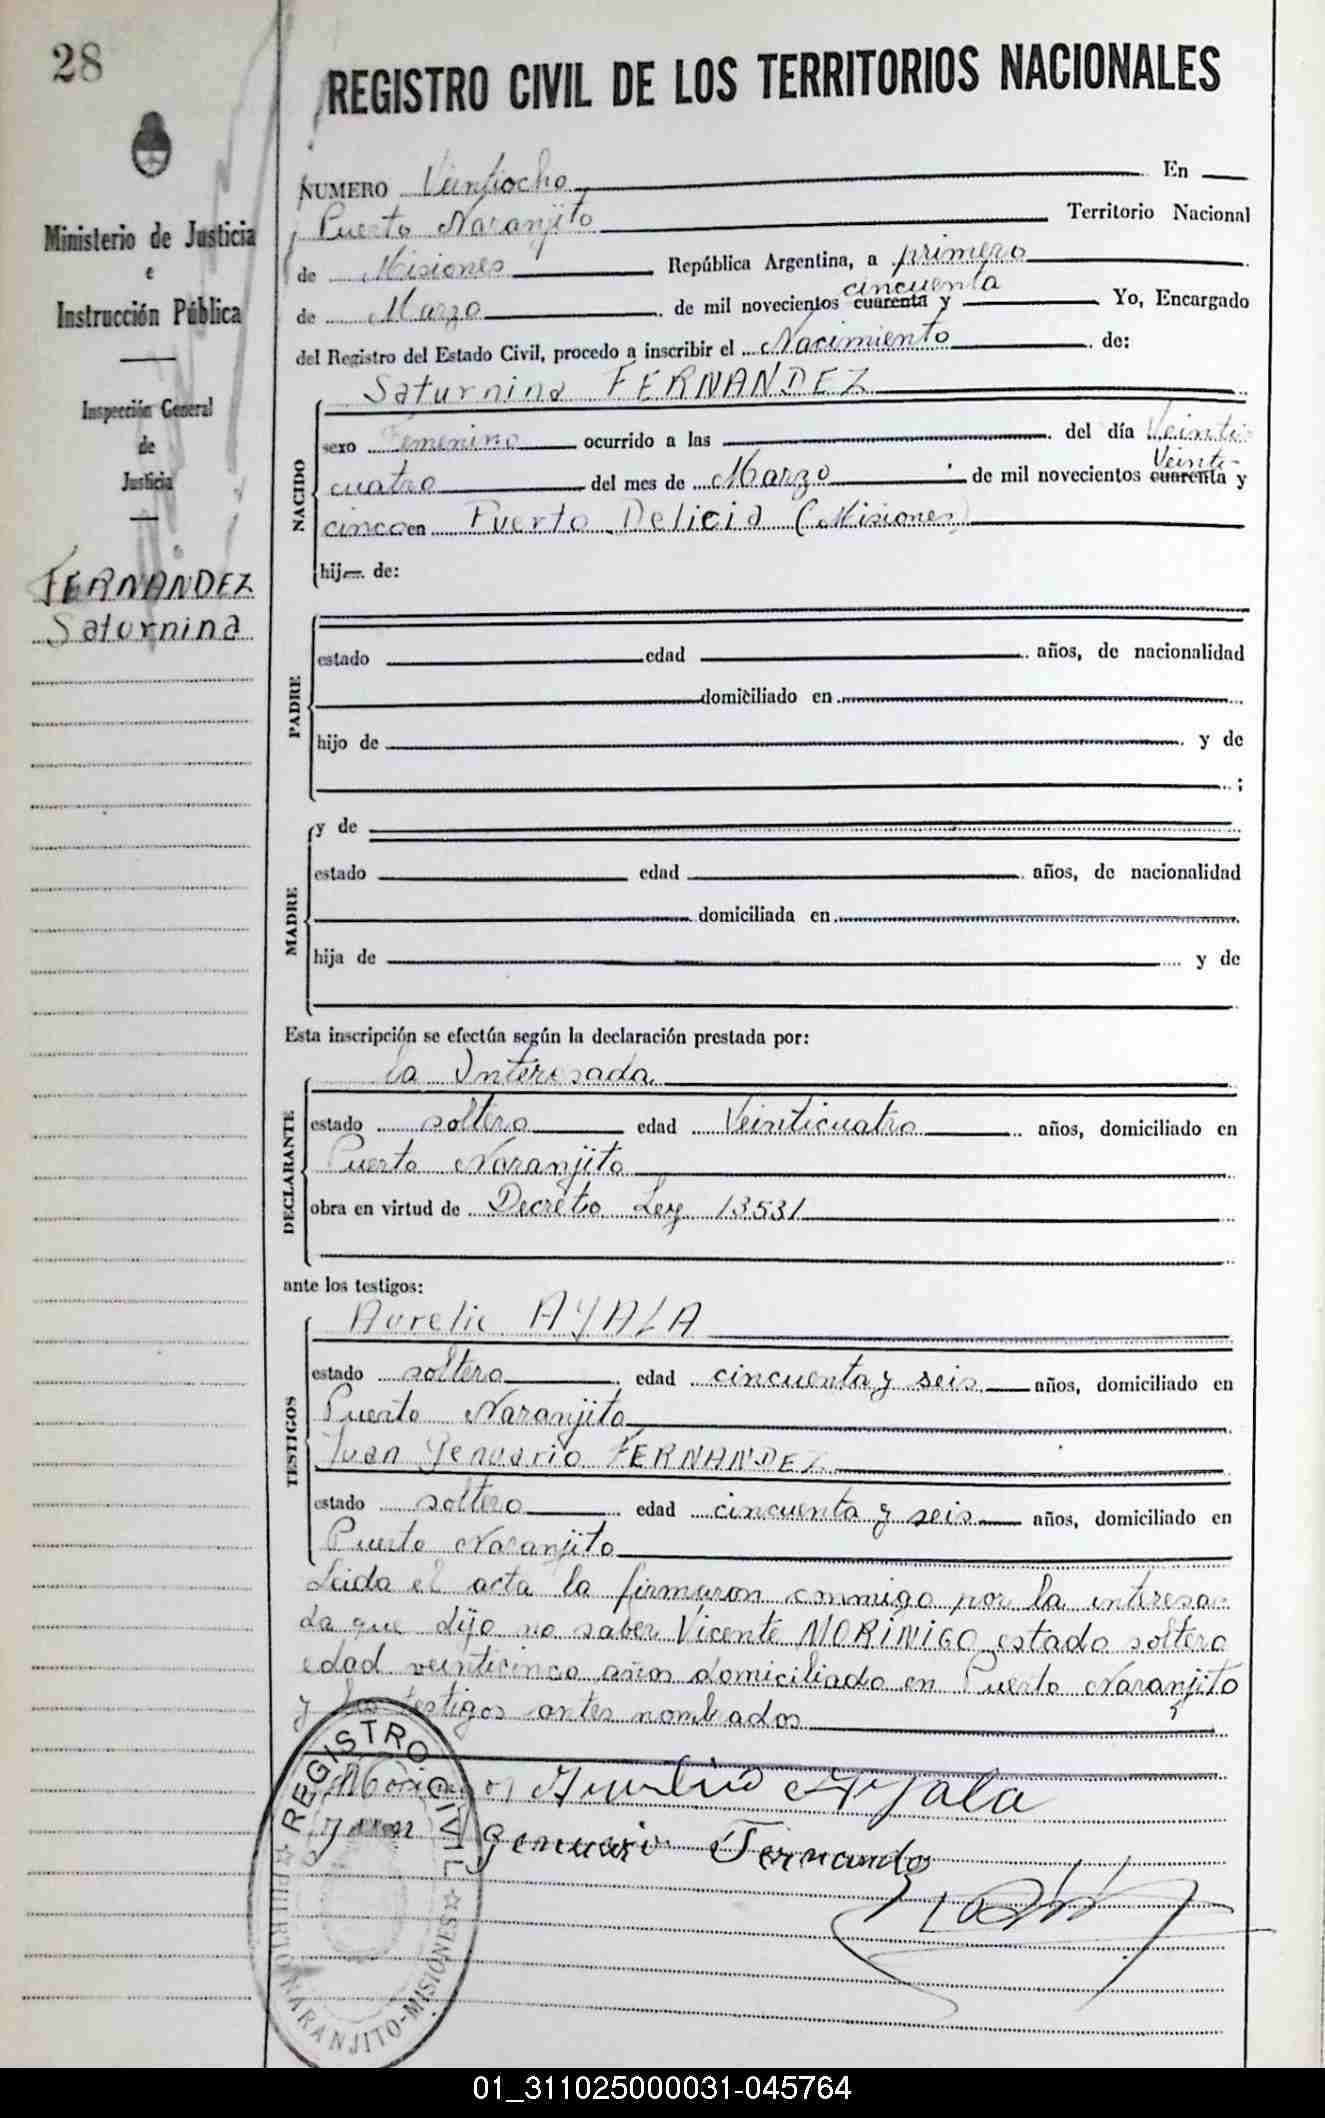 28
REGISTRO CIVIL DE LOS TERRITORIOS NACIONALES
Ministerio de Justicia
e
Instrucción Pública
Inspección General
de
Justicia
FERNANDEZ
Saturnina
NUMERO Veintiocho En
Puerto Naranjito Territorio Nacional
de Misiones República Argentina, a primero
cincuenta
de Marzo de mil novecientos cuarenta y Yo, Encargado
del Registro del Estado Civil, procedo a inscribir el Nacimiento de:
Saturnina FERNANDEZ
NACIDO
sexo Femenino ocurrido a las del día Veinti-
Veinti-
cuatro del mes de Marzo de mil novecientos cuarenta y
cinco en Puerto Delicia (Misiones)
hij de:
PADRE
estado edad años, de nacionalidad
domiciliado en
hijo de y de
;
MADRE
y de
estado edad años, de nacionalidad
domiciliada en
hija de y de
Esta inscripción se efectúa según la declaración prestada por:
la Interesada
DECLARANTE
estado soltera edad Veinticuatro años, domiciliado en
Puerto Naranjito
obra en virtud de Decreto Ley 13531
ante los testigos:
Aurelio AYALA
TESTIGOS
estado soltero edad cincuenta y seis años, domiciliado en
Puerto Naranjito
Juan Genuario FERNANDEZ
estado soltero edad cincuenta y seis años, domiciliado en
Puerto Naranjito
Leida el acta la firmaron conmigo por la interesa-
da que dijo no saber Vicente MORINIGO estado soltero
edad veinticinco años domiciliado en Puerto Naranjito
y los testigos antes nombrados
Morinigo Aurelio Ayala
Juan Genuario Fernandes
REGISTRO CIVIL
PUERTO NARANJITO-MISIONES
01_311025000031-045764